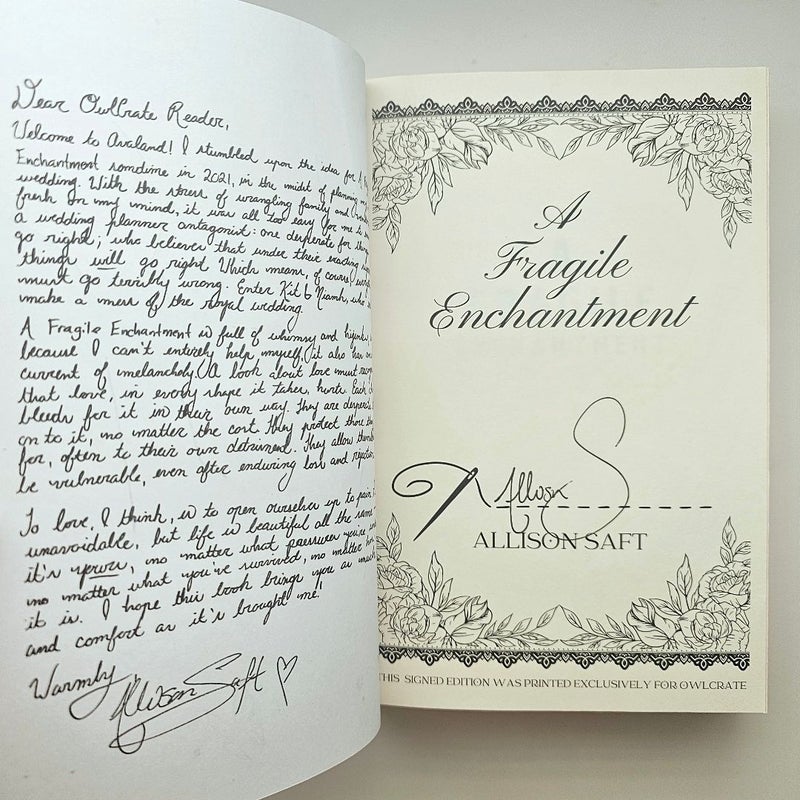 Dear OwlCrate Reader,
Welcome to Avaland! I stumbled upon the idea for A
Enchantment somtime in 2021, in the midst of planning my
wedding. With the stress of wrangling family and
fresh on my mind, it was all too easy for me to
a wedding planner antagonist: one desperate for
go right; who believes that under their exacting
things will go right. Which means, of course,
must go terribly wrong. Enter Kit & Niamh, who
make a mess of the royal wedding.
A Fragile Enchantment is full of whimsy and
because I can't entirely help myself, it also has
current of melancholy. A book about love must
that love, in every shape it takes, hurts. Each
bleeds for it in their own way. They are
on to it, no matter the cost. They protect those
for, often to their own detriment. They allow
be vulnerable, even after enduring loss and
To love, I think, is to open ourselves up to
unavoidable, but life is beautiful all the same
it's yours, no matter what pressures you're
no matter what you've survived, no matter how
it is. I hope this book brings you as much
and comfort as it's brought me!
Warmly,
Allison Saft
A
Fragile
Enchantment
Allison S
ALLISON SAFT
THIS SIGNED EDITION WAS PRINTED EXCLUSIVELY FOR OWLCRATE